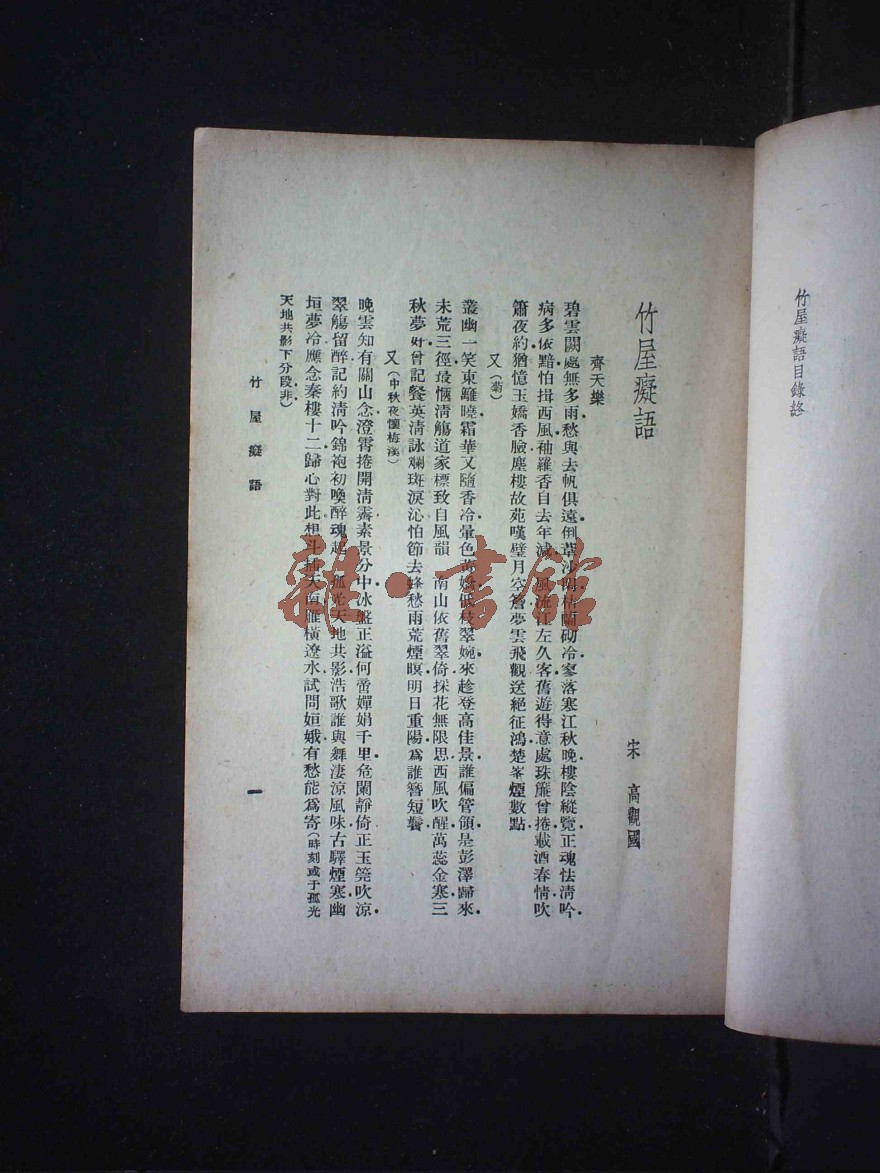 竹屋癡語目錄終
竹屋癡語
宋 高觀國
齊天樂
碧雲闕處無多雨愁與去帆俱遠倒葦沙閒枯蘭砌冷寥落寒江秋晚樓陰縱覽正魂怯淸吟
病多依黯怕挹西風袖羅香自去年減風流江左久客舊遊得意處珠簾曾捲載酒春情吹
簫夜約猶憶玉嬌香臉塵樓故苑嘆璧月空簷夢雲飛觀送絕征鴻楚峯煙數點
又(菊)
叢幽一笑東籬曉霜華又隨香冷暈色黃嬌低枝翠婉來趁登高佳景誰偏管領是彭澤歸來
未荒三徑最愜淸觴道家標致自風韻 南山依舊翠倚採花無限思西風吹醒萬蕊金寒三
秋夢好曾記餐英淸詠斕斑淚沁怕節去蜂愁雨荒煙暝明日重陽爲誰簪短鬢
又(中秋夜懷梅溪)
晚雲知有關山念澄霄捲開淸霽素景分中冰盤正溢何啻嬋娟千里危闌靜倚正玉筦吹涼
翠觴留醉記約淸吟錦袍初喚醉魂起 孤光天地共影浩歌誰與舞淒涼風味古驛煙寒幽
垣夢冷應念秦樓十二歸心對此想斗插天南雁橫遼水試問姮娥有愁能爲寄(時刻或于孤光
天地共影下分段非)
竹屋癡語
一
雜·書館